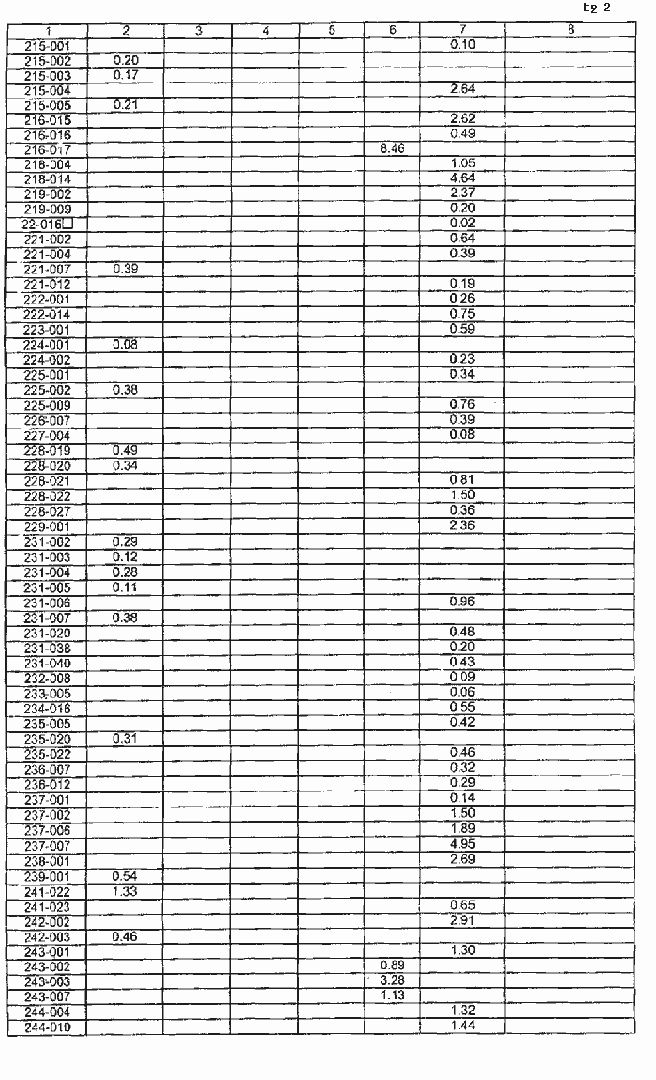 tg 2
1 2 3 4 5 6 7 8
215-001 0.10
215-002 0.20
215-003 0.17
215-004 2.64
215-005 0.21
216-015 2.62
216-016 0.49
216-017 8.46
218-004 1.05
218-014 4.64
219-002 2.37
219-009 0.20
22-016□ 0.02
221-002 0.64
221-004 0.39
221-007 0.39
221-012 0.19
222-001 0.26
222-014 0.75
223-001 0.59
224-001 0.08
224-002 0.23
225-001 0.34
225-002 0.38
225-009 0.76
226-007 0.39
227-004 0.08
228-019 0.49
228-020 0.34
228-021 0.81
228-022 1.50
228-027 0.36
229-001 2.36
231-002 0.29
231-003 0.12
231-004 0.28
231-005 0.11
231-006 0.96
231-007 0.38
231-020 0.48
231-038 0.20
231-040 0.43
232-008 0.09
233-005 0.06
234-016 0.55
235-005 0.42
235-020 0.31
235-022 0.46
236-007 0.32
236-012 0.29
237-001 0.14
237-002 1.50
237-006 1.89
237-007 4.95
238-001 2.69
239-001 0.54
241-022 1.33
241-023 0.65
242-002 2.91
242-003 0.46
243-001 1.30
243-002 0.89
243-003 3.28
243-007 1.13
244-004 1.32
244-010 1.44